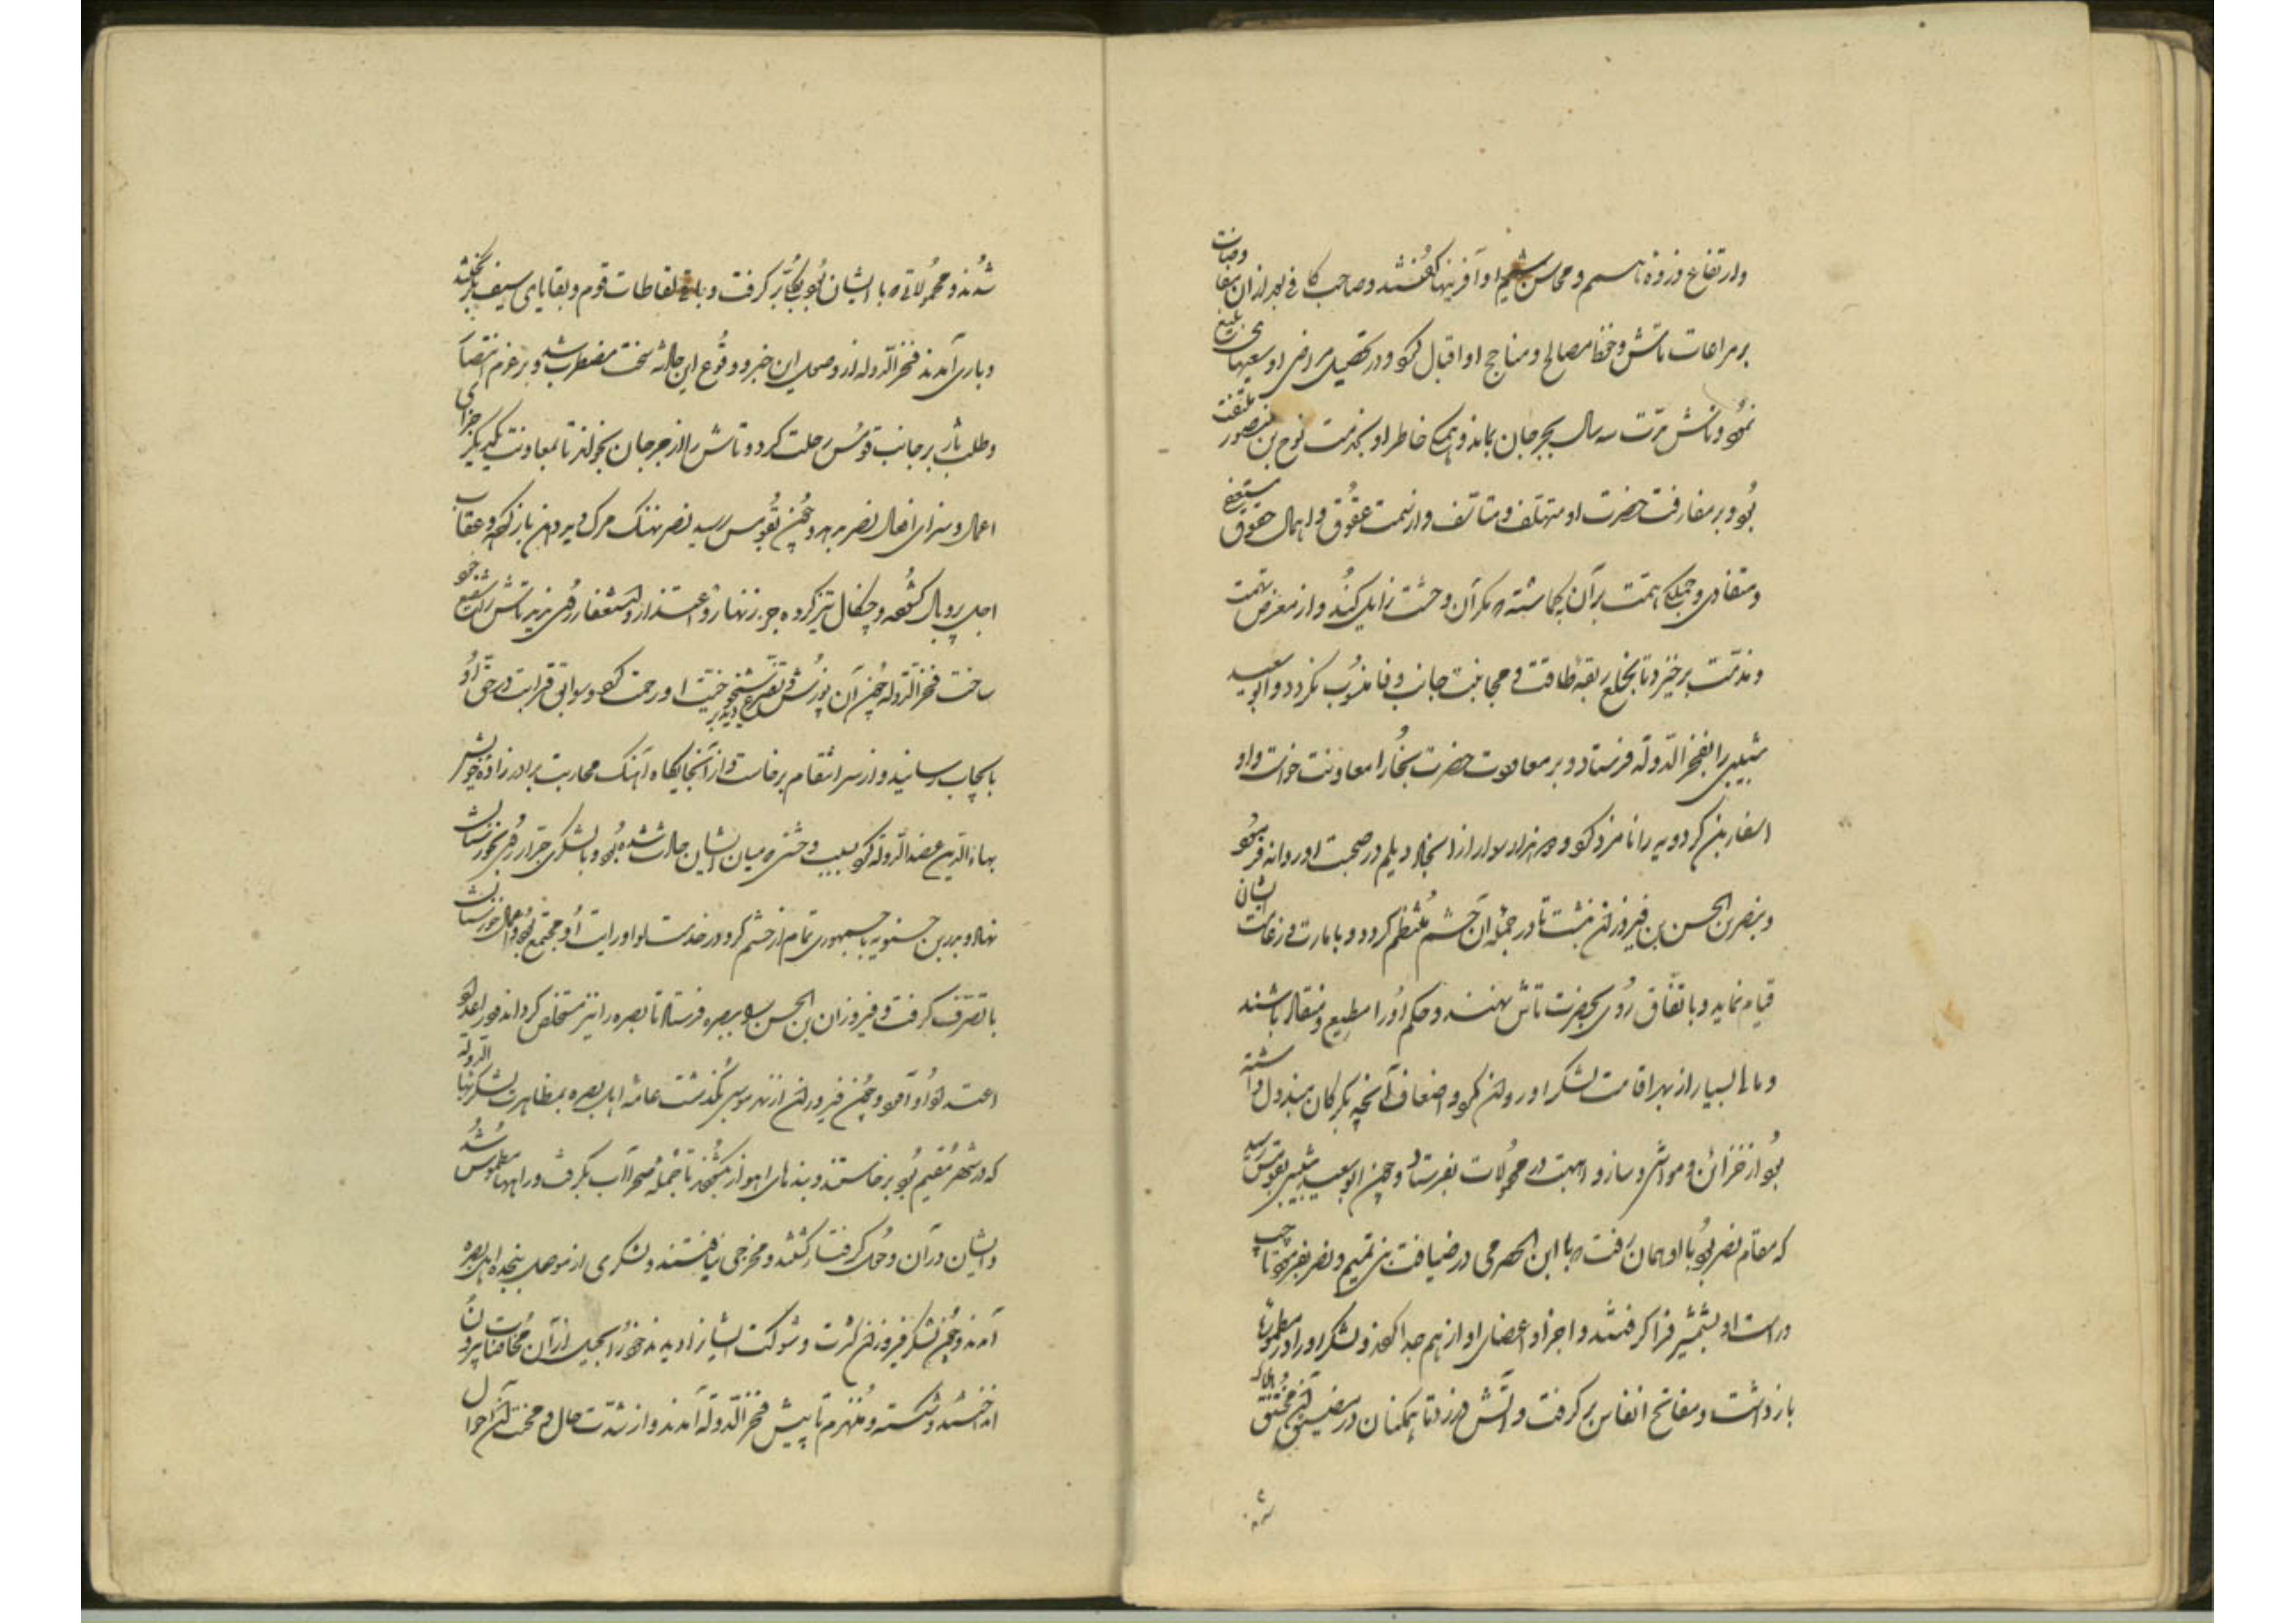 وارتفاع وذروهٔ ناسم ومحاسن شیم او آفرینها گفتند وصاحب کافی بعد از ان مفاوضات
بر مراعات تاش وحفظ مصالح ومناجح او اقبال کرد و در تحصیل مراضی او سعیهای بلیغ
نمود و تاش مدّت سه سال بجرجان بماند و همگی خاطر او بخدمت نوح بن منصور ملتفت
بود و بر مفارقت حضرت او متهلف و متأسف و از سمت عقوق و اهمال حقوق مستعفی
و متفادی و جملگی همّت بر آن گماشته که مگر آن وحشت زایل کند و از معرض تهمت
و مذمّت برخیزد تا بخلع ربقهٔ طاعت و مجانبت جانب وفا منسوب نگردد و ابو سعید
شبیبی را بفخر الدّوله فرستاد و بر معاودت حضرت بخارا معاونت خواست و او
اسفار بن کردویه را نامزد کرد و دو هزار سوار از انجاد دیلم در صحبت او روانه فرمود
و بنصر بن الحسن بن فیروزان نبشت تا در جملهٔ آن حشم منتظم گردد و بامارت و زعامت ایشان
قیام نماید و باتفاق روی بحضرت تاش نهند و حکم او را مطیع و منقاد باشند
و مالی بسیار از بهر اقامت لشکر او روان کرد و اضعاف آنچه بگرگان مبذول داشته
بود از خزائن و مواشی و ساز و اهبت در محمولات بفرستاد و چون ابو سعید شبیبی بقومس رسید
که مقام نصر بود با او همان رفت که با ابن الحضرمی در ضیافت بنی تمیم و نصر بفرمود تا چپ
و راست او بشمشیر فرا گرفتند و اجزا و اعضای او از هم جدا کردند و لشکر او را در مطموره‌ها
باز داشت و مفاتح انفاس بر گرفت و آتش در زد تا همگنان در مضیق آن مختنق هلاک
شدند و محمولاتی که با ایشان بود بکلی بر گرفت و باقی لقاطات قوم و بقایای سیف بگریختند
و باری آمدند فخر الدّوله از وصول این خبر و وقوع این حادثه سخت مضطرب شد و بر عزم انتصار
و طلب ثار بر جانب قومس رحلت کرد و تاش را از جرجان بخواند تا بمعاونت یکدیگر جزای
اعمال و سزای افعال نصر بدهد و چون بقومس رسید نصر نهنگ مرگ دید دهن باز کرده و عقاب
اجل پر و بال گشوده و چنگال تیز کرده جز زنهار و اعتذار و استغفار روی ندید تاش را شفیع خود
ساخت فخر الدّوله چون آن پوزش و تضرع بدید بر وی ببخشود و رحمت کرد و سوابق قرابت در حق او
بایجاب رسانید و از سر انتقام برخاست و از آنجایگاه آهنگ محاربت برادر زادهٔ خویش
بهاء الدّین عضد الدّوله کرد بسبب وحشتی که میان ایشان حادث شده بود و با لشکری جرّار روی بخوزستان
نهاد و بدر بن حسنویه با جمهوری تمام از حشم کرد در خدمت او و رایت او مجتمع بود و اعمال خوزستان
با تصرف گرفت و فیروزان بن الحسن را ببصره فرستاد تا بصره را نیز مستخلص گرداند
اعتداد او آمد و چون فیروزان از نهر موسی بگذشت عامهٔ اهل بصره بمظاهرت لشکر بهاء الدّوله
که در شهر مقیم بود برخاستند و بندهای اهواز بگشودند تا جملهٔ صحرا آب بگرفت و راهها مطموس شد
و ایشان در آن وحل گرفتار گشتند و مخرجی نیافتند و لشکری از موصل بنجدهٔ اهل بصره
آمدند و چون لشکر فیروزان کثرت و شوکت ایشان را دیدند خود را بحیل از آن مخاضات بیرون
انداختند و شکسته و منهزم تا پیش فخر الدّوله آمدند و از شدّت حال و محنت آن احوال